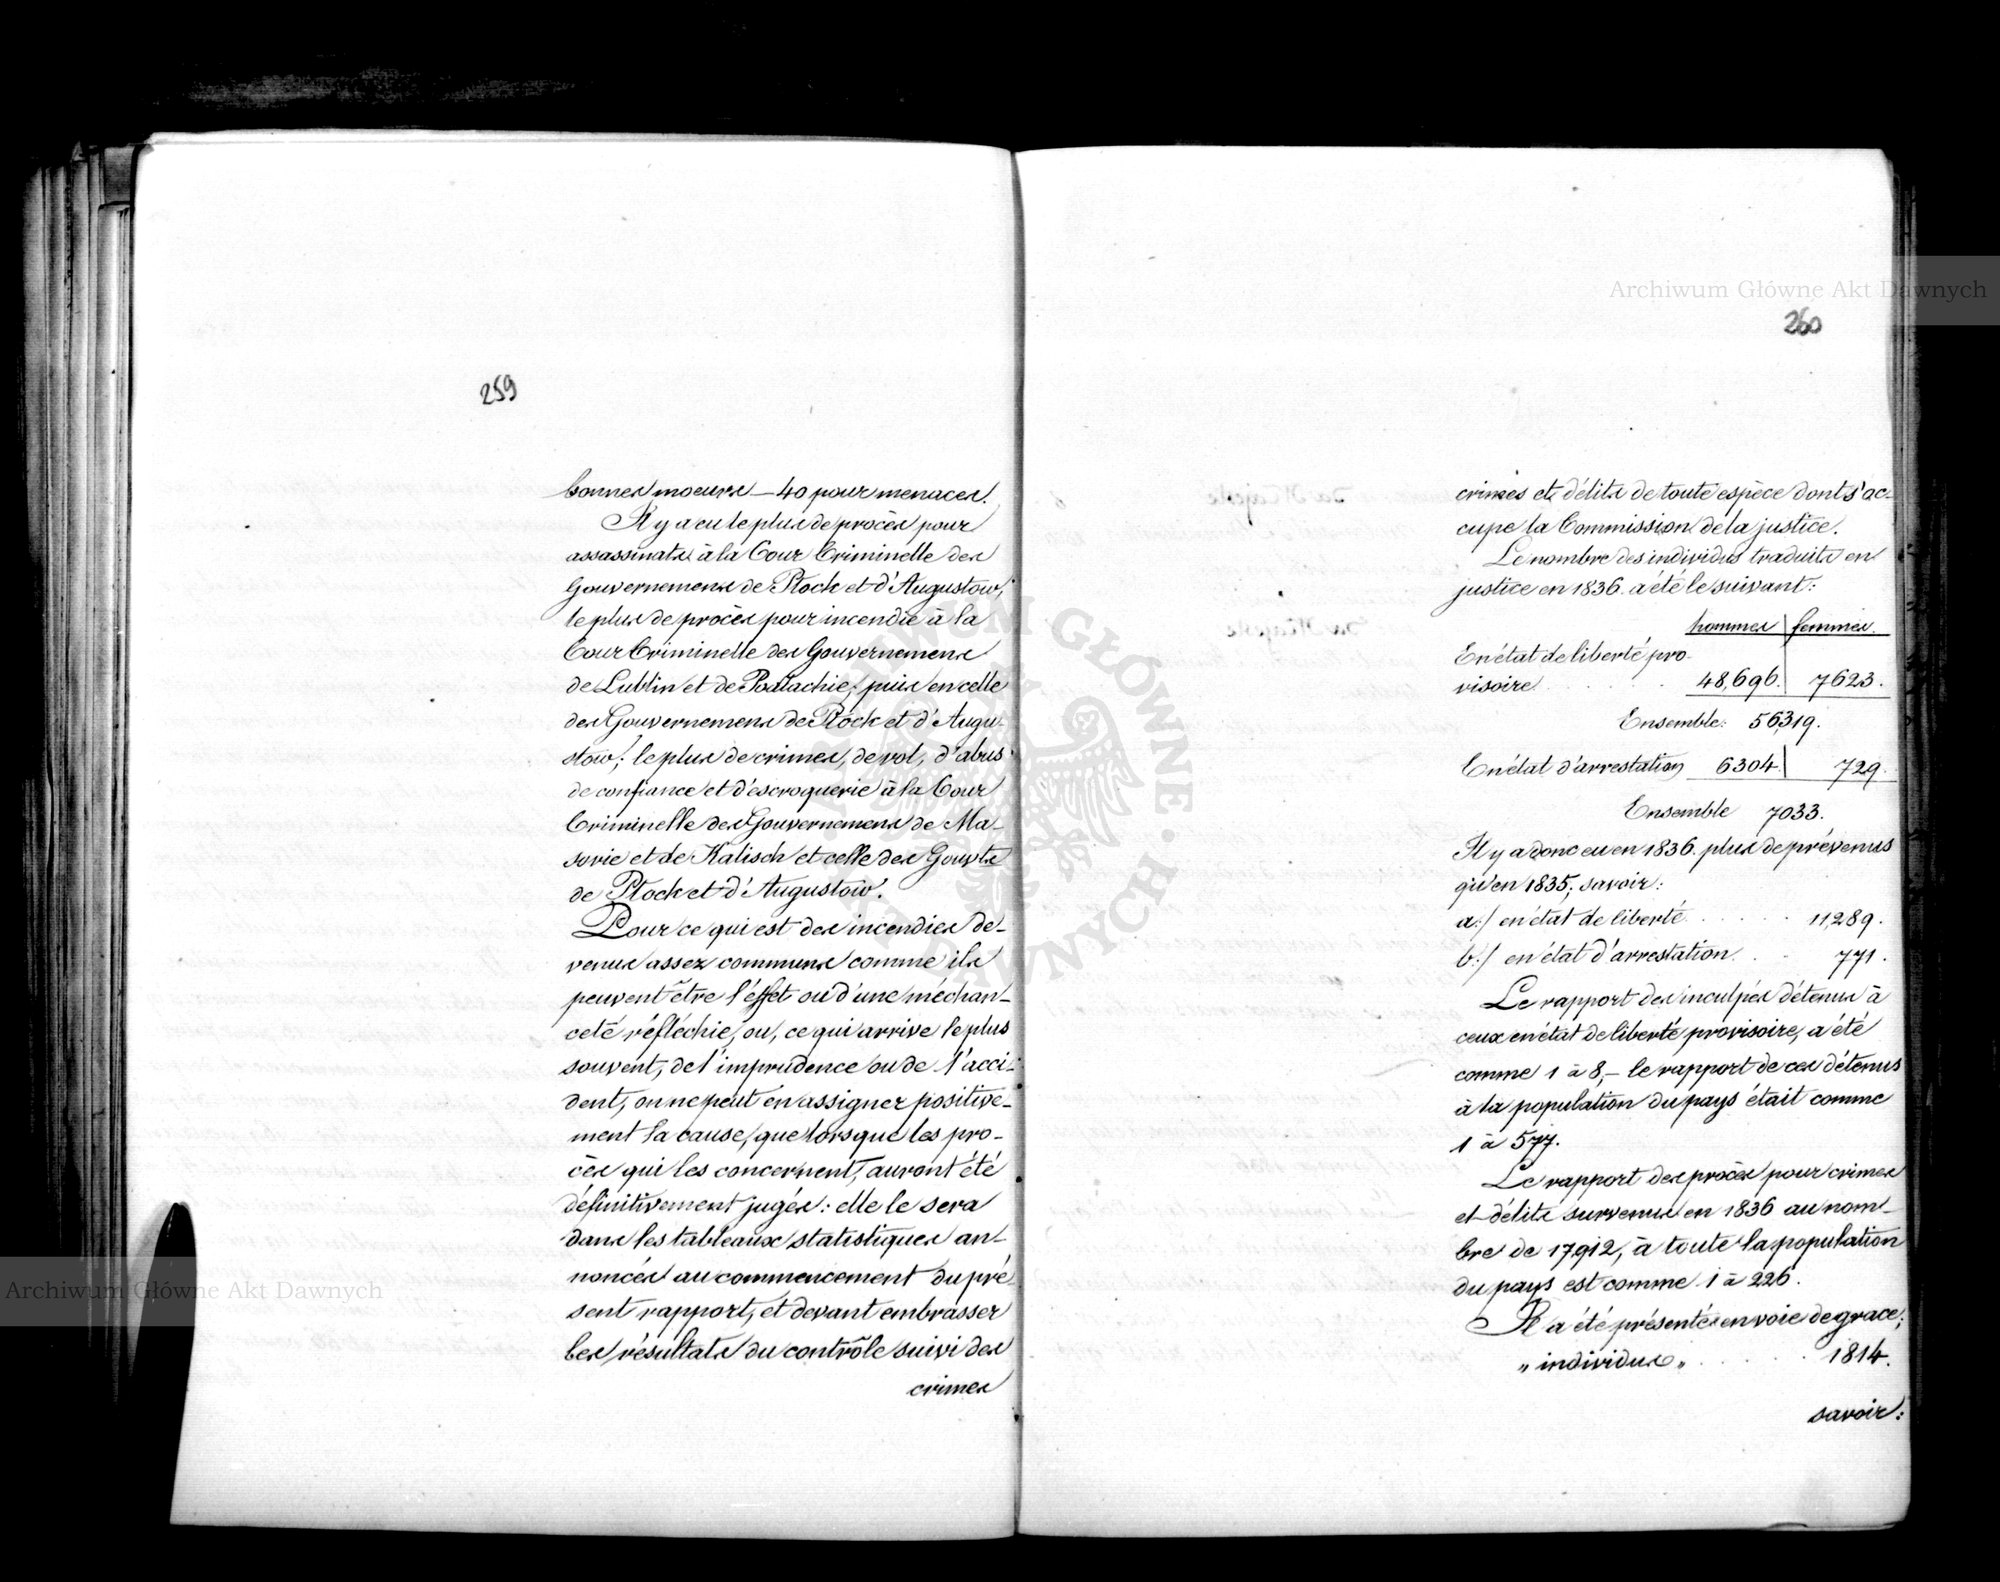 259
bonnes moeurs — 40 pour menaces.
Il y a eu le plus de procès pour
assassinats à la Cour Criminelle des
Gouvernemens de Plock et d'Augustow,
le plus de procès pour incendie à la
Cour Criminelle des Gouvernemens
de Lublin et de Podlachie; puis en celle
des Gouvernemens de Plock et d'Augu-
stow; le plus de crimes, de vol, d'abus
de confiance et d'escroquerie à la Cour
Criminelle des Gouvernemens de Ma-
sovie et de Kalisch et celle des Gouvts
de Plock et d'Augustow.
Pour ce qui est des incendies de-
venus assez communs comme ils
peuvent être l'éffet ou d'une méchan-
ceté réfléchie, ou, ce qui arrive le plus
souvent, de l'imprudence ou de l'acci-
dent, on ne peut en assigner positive-
ment la cause, que lorsque les pro-
cès qui les concernent, auront été
définitivement jugés: elle le sera
dans les tableaux statistiques an-
noncés au commencement du pré-
sent rapport, et devant embrasser
les résultats du contrôle suivi des
crimes
260
crimes et délits de toute espèce dont s'oc-
cupe la Commission de la justice.
Le nombre des individus traduits en
justice en 1836. a été le suivant:
hommes femmes.
En état de liberté pro-
visoire . . . . . 48,696. 7623.
Ensemble: 56,319.
En état d'arrestation 6304. 729.
Ensemble 7033.
Il y a donc eu en 1836. plus de prévenus
qu'en 1835; savoir:
a:/ en état de liberté . . . . . 11,289.
b:/ en état d'arrestation . . 771.
Le rapport des inculpés détenus à
ceux en état de liberté provisoire, a été
comme 1 à 8,— le rapport de ces détenus
à la population du pays était comme
1 à 577.
Le rapport des procès pour crimes
et délits survenus en 1836 au nom-
bre de 17,912, à toute la population
du pays est comme 1 à 226.
Il a été présenté en voie de grace;
„ individus „ . . . . . 1814.
savoir:
Archiwum Główne Akt Dawnych
Archiwum Główne Akt Dawnych